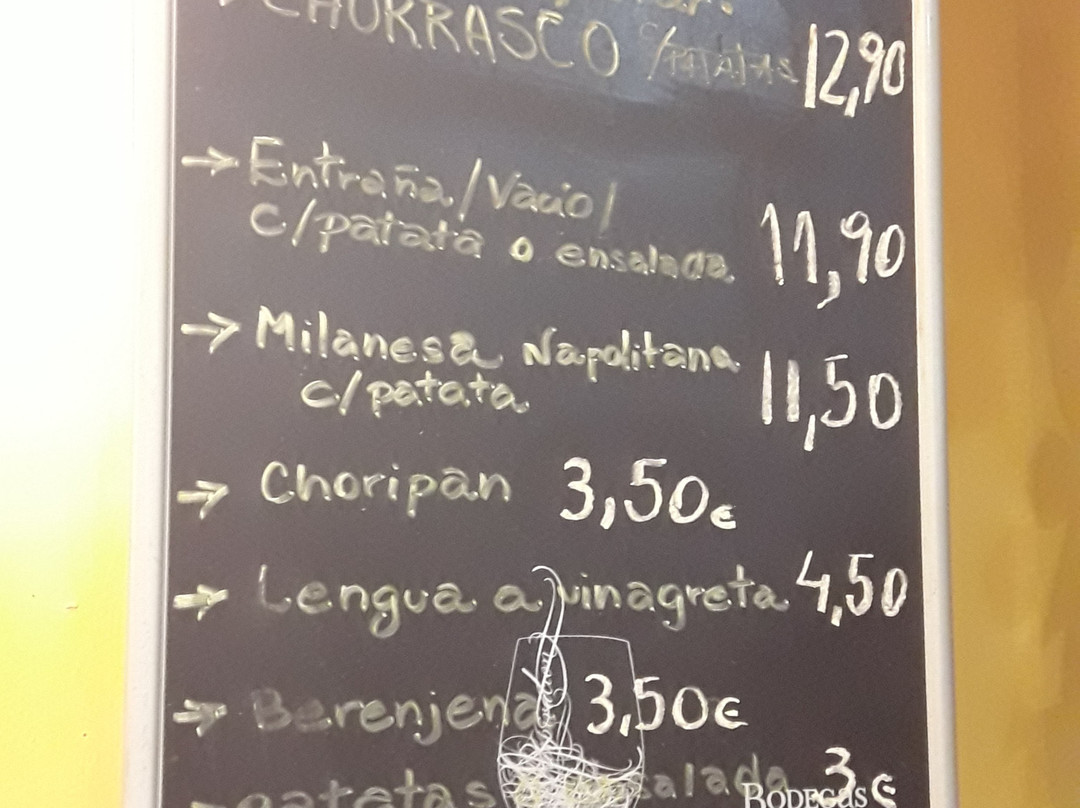 CHURRASCO c/PATATAS 12,90
→ Entraña/Vacio/
c/patata o ensalada 11,90
→ Milanesa Napolitana
c/patata 11,50
→ Choripan 3,50€
→ Lengua a vinagreta 4,50
→ Berenjena 3,50€
patatas ensalada 3€
BODEGAS